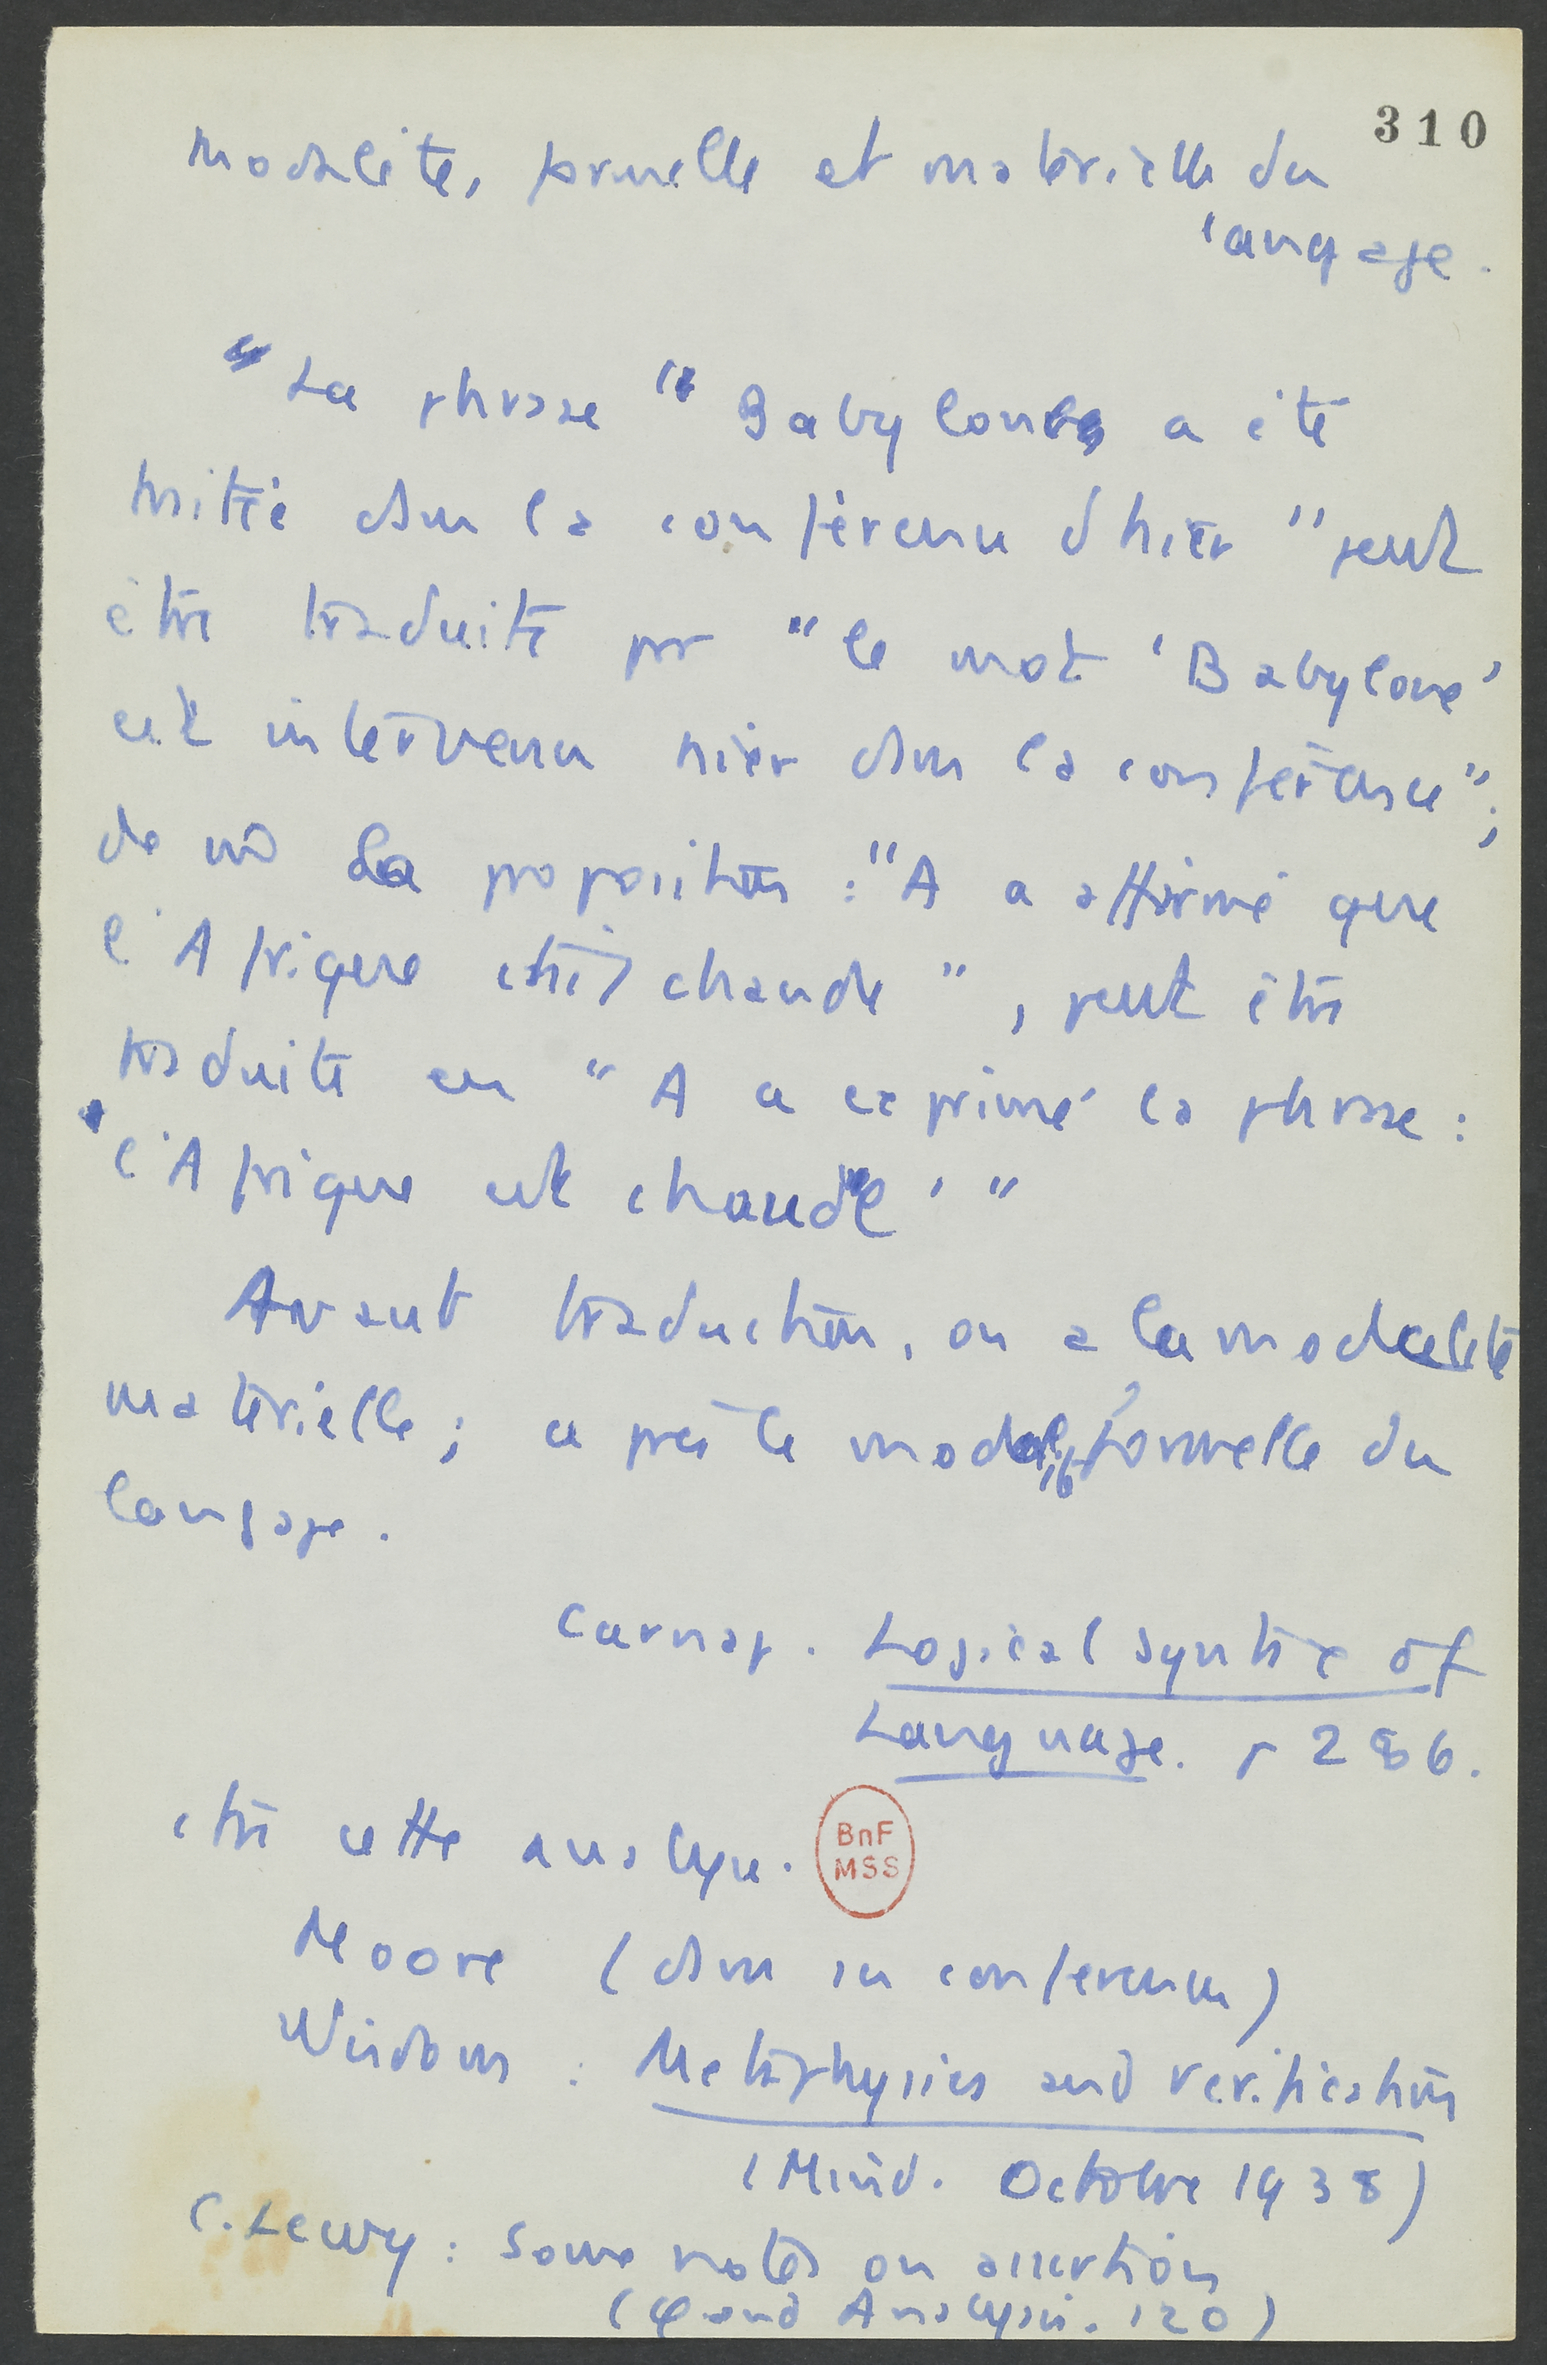 310
Modalités formelle et matérielle du
langage.
"La phrase "Babylone a été
traitée dans la conférence d'hier" peut
être traduite par "le mot 'Babylone'
est intervenu hier dans la conférence";
de m̂ la proposition : "A a affirmé que
l'Afrique était chaude", peut être
traduite en "A a exprimé la phrase :
'l'Afrique est chaude' "
Avant traduction, on a la modalité
matérielle ; après la modalité formelle du
langage.
Carnap. Logical syntax of
Language. p 286.
cette analyse.
BnF
MSS
Moore (dans sa conférence)
Wisdom : Metaphysics and verification
(Mind. Octobre 1938)
C. Lewy : Some notes on assertion
(φ and Analysis. 120)